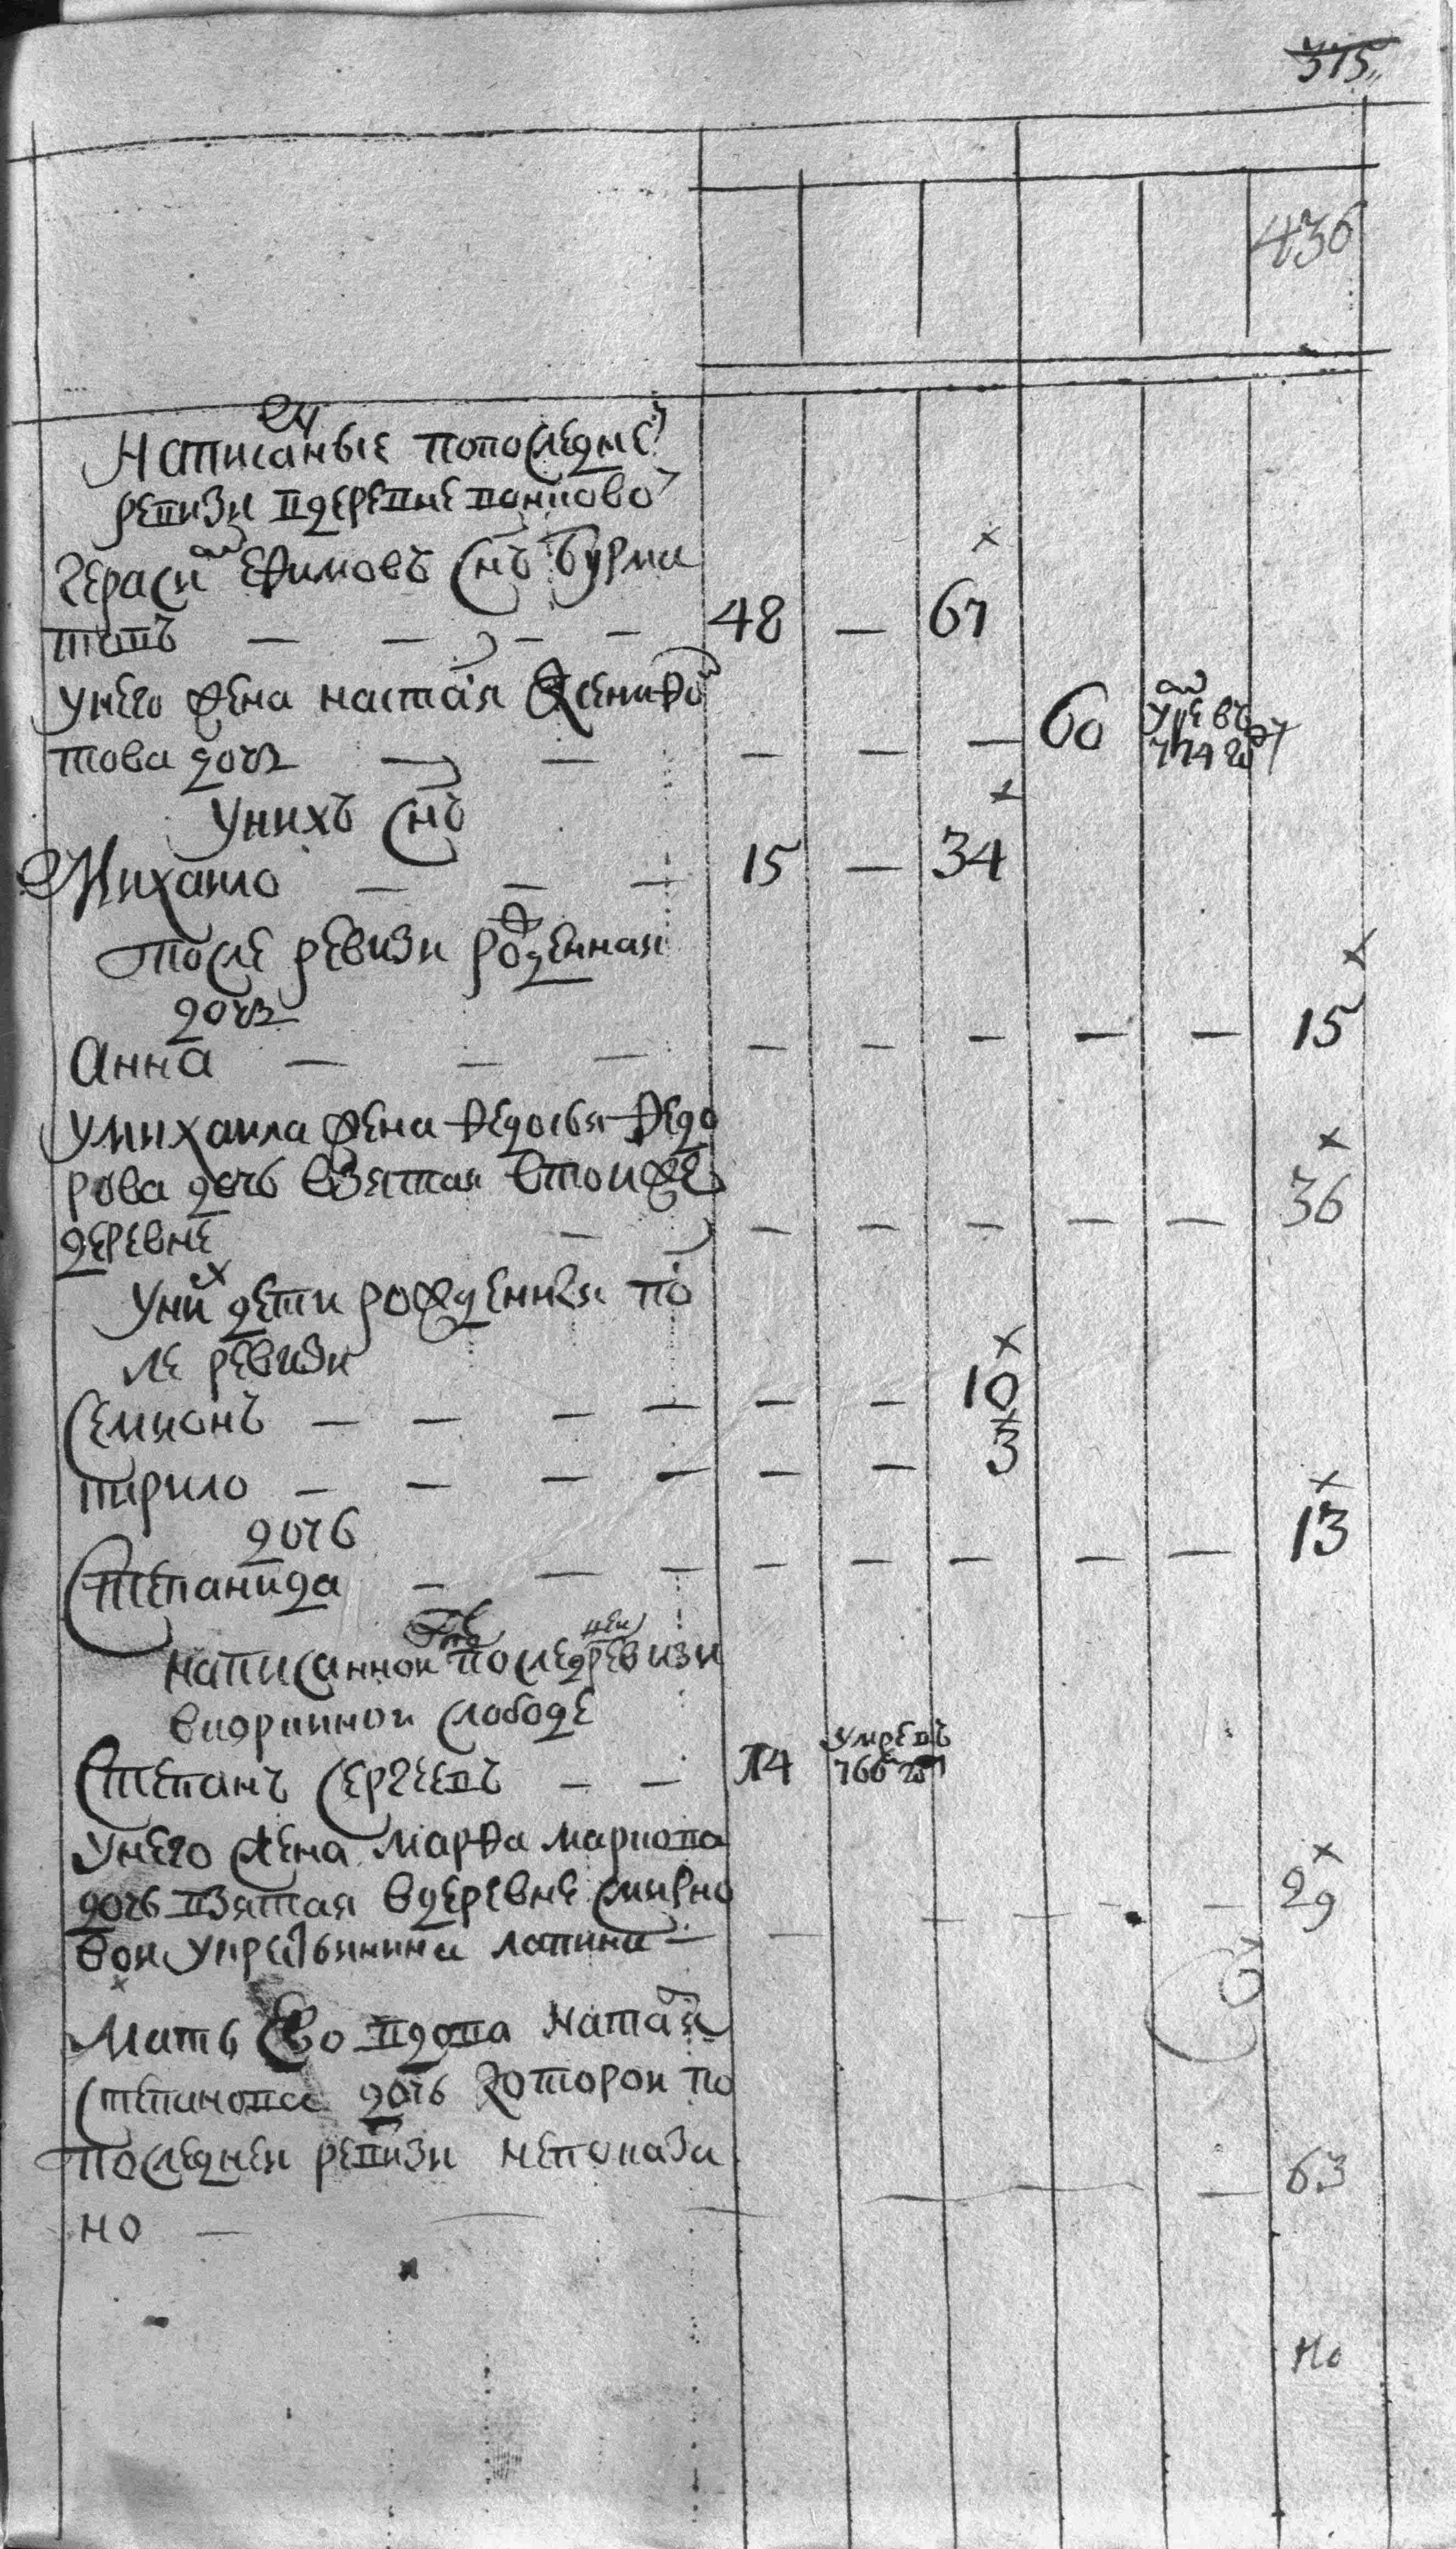 315
436
Написаные попоследней
ревизи вдеревне
Герасим Ефимовъ снъ бурма
48 — 67
унего жена настася
това дочь — — — — — 60
унихъ снъ
Михаило — — — 15 — 34
после ревизи рожденная
дочь
анна — — — — — — — — 15
умихаила жена федосья федо
рова дочь взятая втоиже
деревне — — — — — — 36
уних дети рожденныя по
ле ревизи
Семионъ — — — — — — 10
кирило — — — — — — 3
дочь
Степанида — — — — — — — — 13
написанной последней ревизи
слободе
Степанъ Сергеевъ — — 14 умревъ
унего жена марфа маркова
дочь взятая вдеревне смирно
вои укрестьянина лапина — — — — 29
Мать ево вдова наталя
степанова дочь которои по
последнеи ревизи непоказа
но — — — — — 63